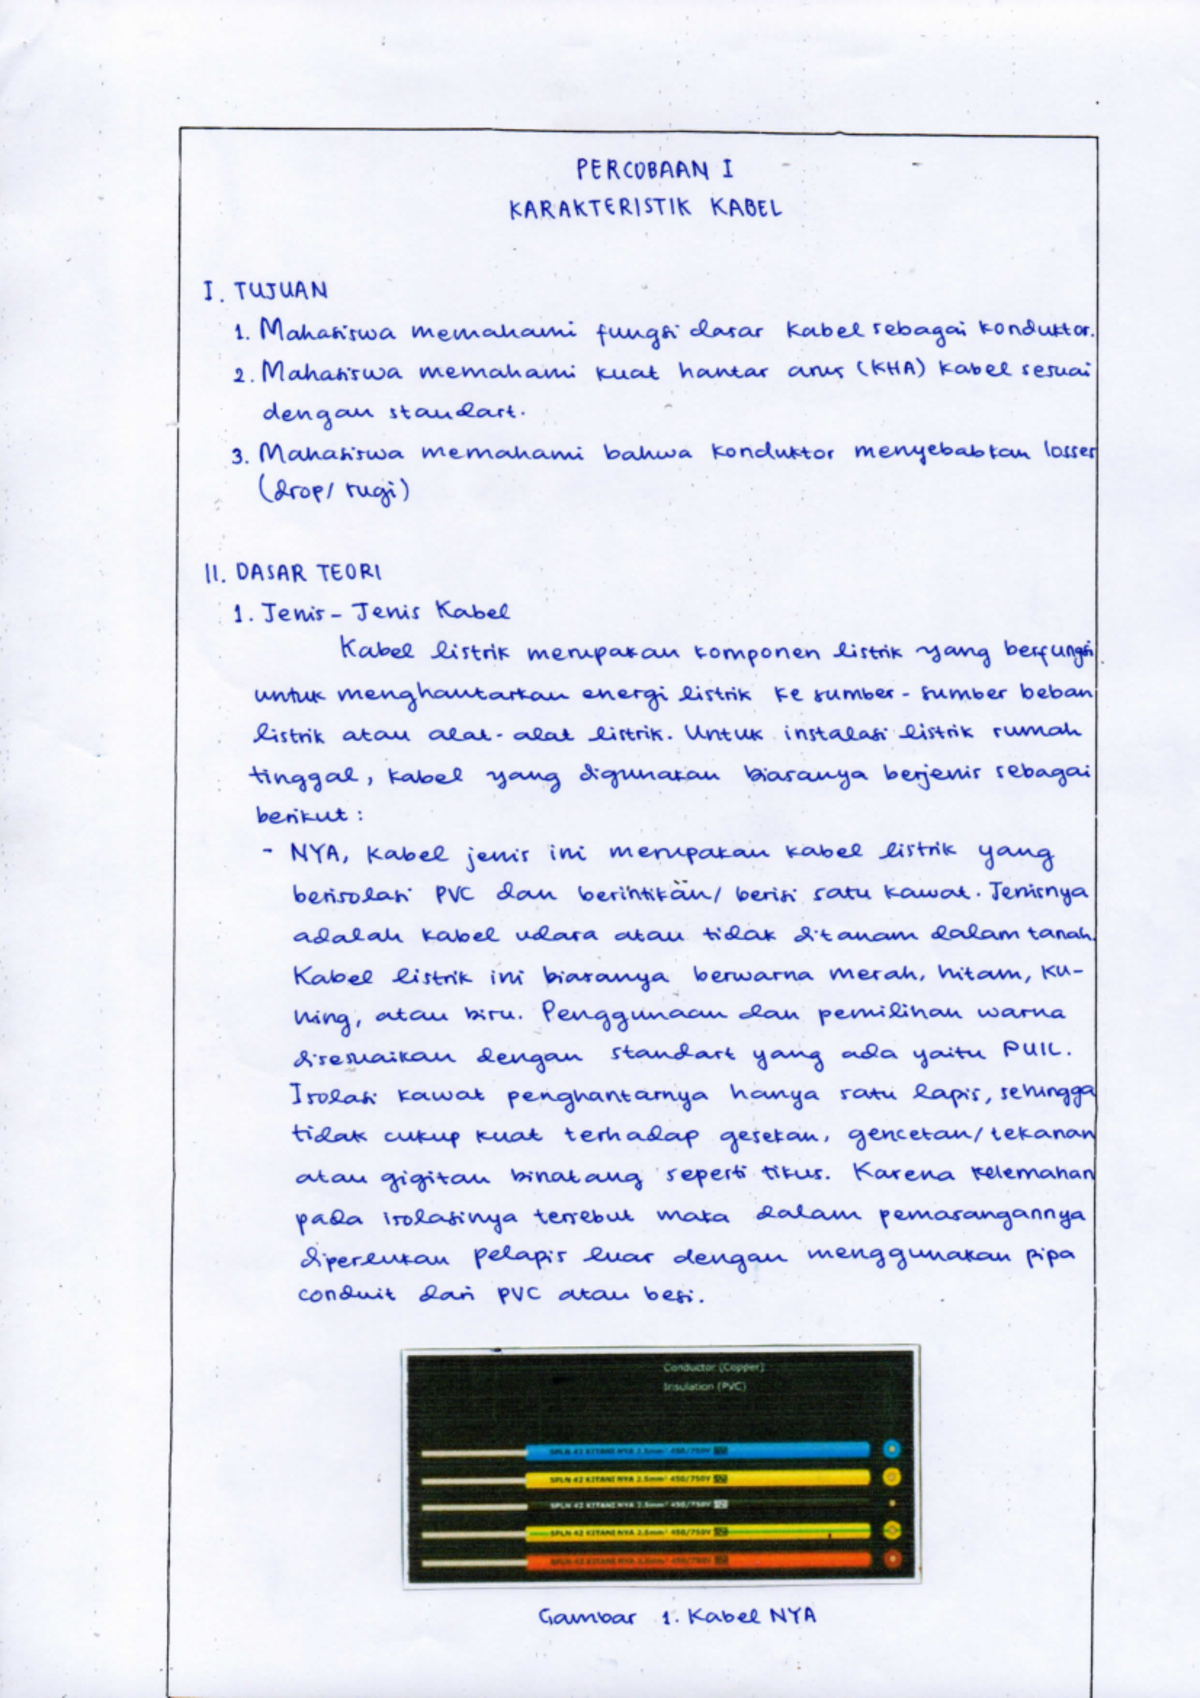 PERCOBAAN I
KARAKTERISTIK KABEL
I. TUJUAN
1. Mahasiswa memahami fungsi dasar kabel sebagai konduktor.
2. Mahasiswa memahami kuat hantar arus (KHA) kabel sesuai
dengan standart.
3. Mahasiswa memahami bahwa konduktor menyebabkan losses
(drop/ rugi)
II. DASAR TEORI
1. Jenis - Jenis Kabel
Kabel listrik merupakan komponen listrik yang berfungsi
untuk menghantarkan energi listrik ke sumber - sumber beban
listrik atau alat - alat listrik. Untuk instalasi listrik rumah
tinggal, kabel yang digunakan biasanya berjenis sebagai
berikut :
- NYA, kabel jenis ini merupakan kabel listrik yang
berisolasi PVC dan berintikan/ berisi satu kawat. Jenisnya
adalah kabel udara atau tidak ditanam dalam tanah.
Kabel listrik ini biasanya berwarna merah, hitam, ku-
ning, atau biru. Penggunaan dan pemilihan warna
disesuaikan dengan standart yang ada yaitu PUIL.
Isolasi kawat penghantarnya hanya satu lapis, sehingga
tidak cukup kuat terhadap gesekan, gencetan/ tekanan
atau gigitan binatang seperti tikus. Karena kelemahan
pada isolasinya tersebut maka dalam pemasangannya
diperlukan pelapis luar dengan menggunakan pipa
conduit dari PVC atau besi.
Conductor (Copper)
Insulation (PVC)
SPLN 42 KITANI NYA 2.5mm² 450/750V
SPLN 42 KITANI NYA 2.5mm² 450/750V
SPLN 42 KITANI NYA 2.5mm² 450/750V
SPLN 42 KITANI NYA 2.5mm² 450/750V
SPLN 42 KITANI NYA 2.5mm² 450/750V
Gambar 1. Kabel NYA